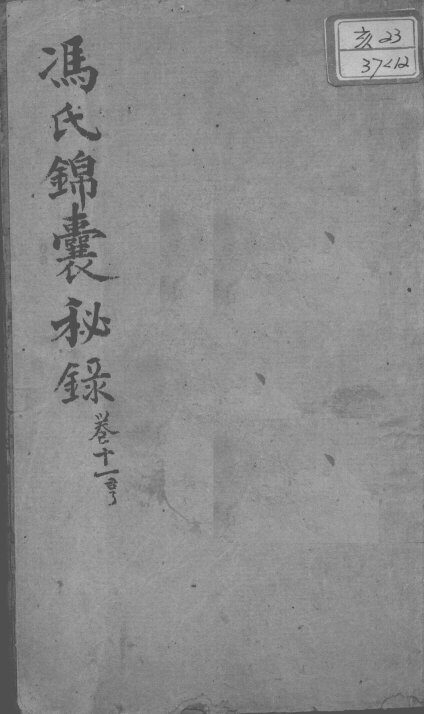 馮氏錦囊秘錄
卷十一
亥23
37<12